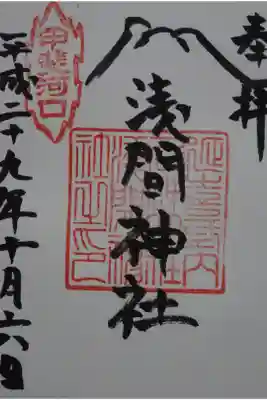 奉拝
浅間神社
甲斐河口
平成二十九年十月六日